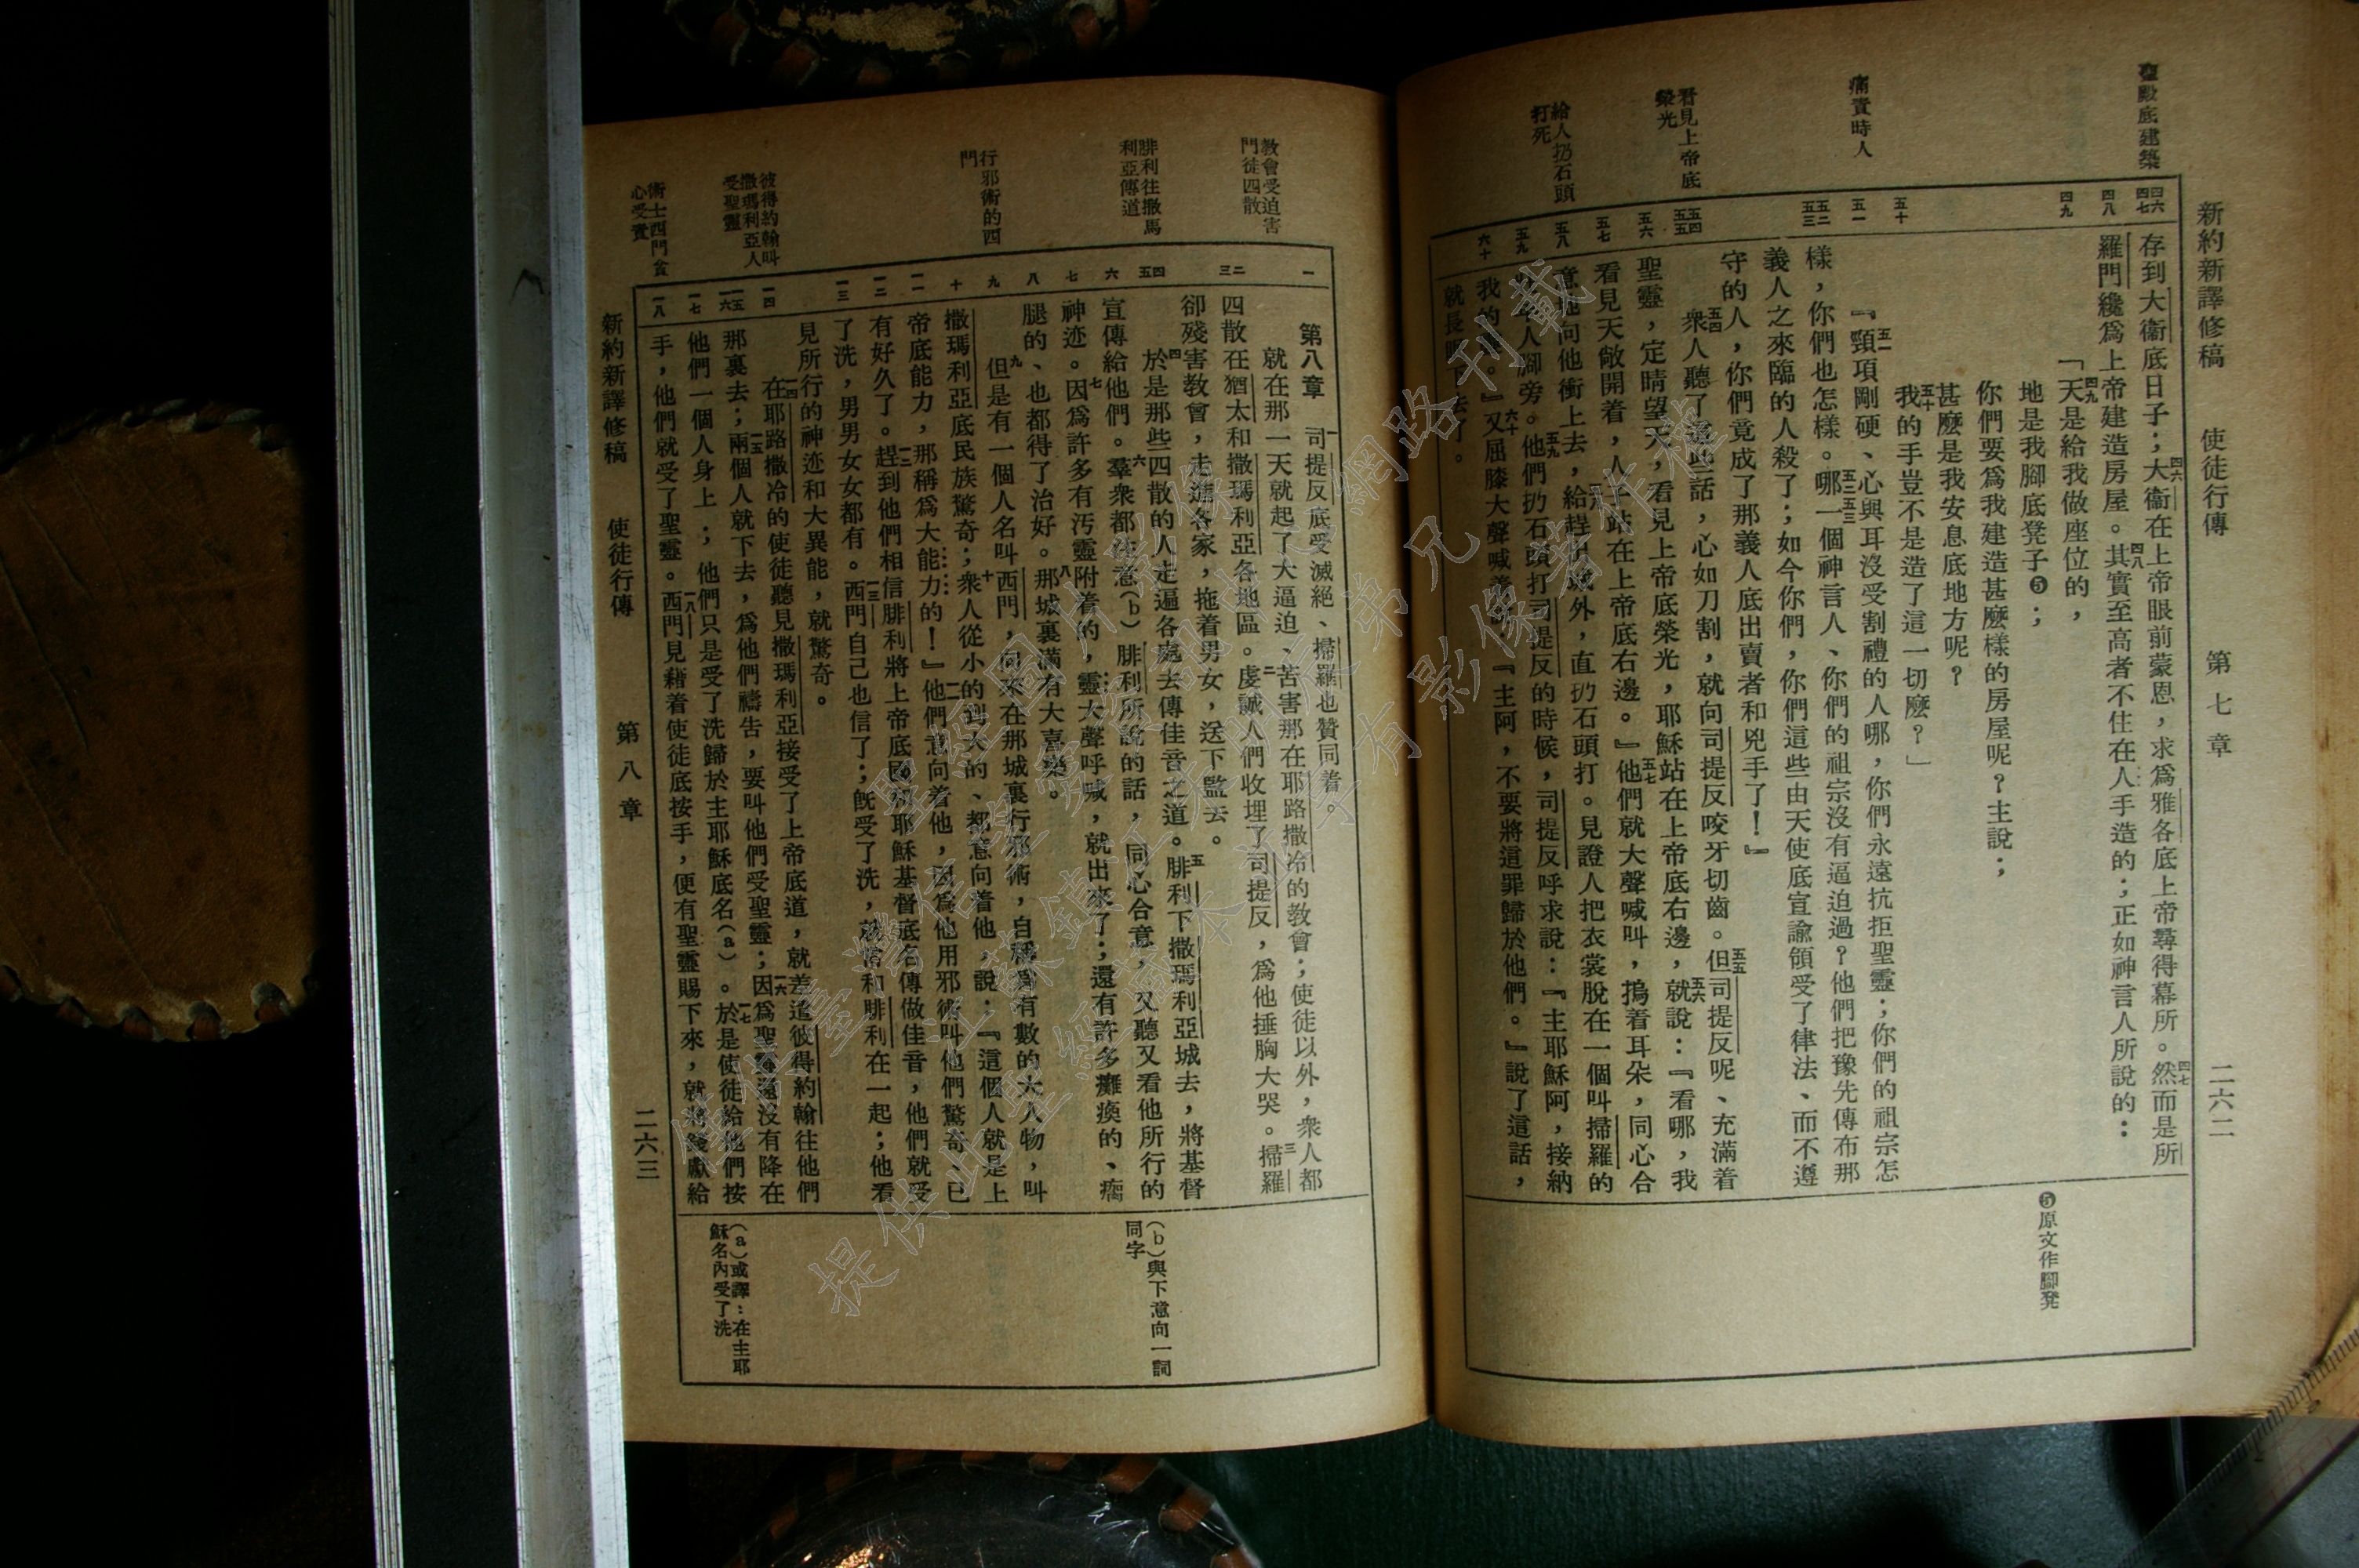 新約新譯修稿　使徒行傳　第七章　二六二
聖殿底建築
痛責時人
看見上帝底
榮光
給人扔石頭
打死
四六
四七
四八
四九
五十
五一
五二
五三
五四
五五
五六
五七
五八
五九
六十
存到大衞底日子；四六大衞在上帝眼前蒙恩，求爲雅各底上帝尋得幕所。四七然而是所
羅門纔爲上帝建造房屋。四八其實至高者不住在人手造的；正如神言人所說的：
「四九天是給我做座位的，
地是我腳底凳子❺；
你們要爲我建造甚麽樣的房屋呢？主說；
甚麽是我安息底地方呢？
五十我的手豈不是造了這一切麽？」
『五一頸項剛硬、心與耳沒受割禮的人哪，你們永遠抗拒聖靈；你們的祖宗怎
樣，你們也怎樣。五二五三哪一個神言人、你們的祖宗沒有逼迫過？他們把豫先傳布那
義人之來臨的人殺了；如今你們，你們這些由天使底宣諭領受了律法、而不遵
守的人，你們竟成了那義人底出賣者和兇手了！』
五四衆人聽了這些話，心如刀割，就向司提反咬牙切齒。五五但司提反呢、充滿着
聖靈，定睛望天，看見上帝底榮光，耶穌站在上帝底右邊，五六就說：『看哪，我
看見天敞開着，人子站在上帝底右邊。』五七他們就大聲喊叫，摀着耳朵，同心合
意地向他衝上去，五八給趕出城外，直扔石頭打。見證人把衣裳脫在一個叫掃羅的
人腳旁。五九他們扔石頭打司提反的時候，司提反呼求說：『主耶穌阿，接納
我的』六十又屈膝大聲喊着說：『主阿，不要將這罪歸於他們。』說了這話，
就長下去了。
❺原文作腳凳
教會受迫害
門徒四散
腓利往撒馬
利亞傳道
行邪術的西
門
彼得約翰叫
撒瑪利亞人
受聖靈
術士西門貪
心受責
一
二
三
四
五
六
七
八
九
十
一一
一二
一三
一四
一五
一六
一七
一八
第八章　一司提反底受滅絕、掃羅也贊同着。
就在那一天就起了大逼迫、苦害那在耶路撒冷的教會；使徒以外，衆人都
四散在猶太和撒瑪利亞各地區。二虔誠人們收埋了司提反，爲他捶胸大哭。三掃羅
卻殘害教會，走進各家，拖着男女，送下監去。
四於是那些四散的人走遍各處去傳佳音之道。五腓利下撒瑪利亞城去，將基督
宣傳給他們。六羣衆都注意(b)腓利所說的話，同心合意，又聽又看他所行的
神迹。七因爲許多有汚靈附着的，靈大聲呼喊，就出來了；還有許多癱瘓的、瘸
腿的、也都得了治好。八那城裏滿有大喜樂。
九但是有一個人名叫西門，向來在那城裏行邪術，自稱爲有數的大人物，叫
撒瑪利亞底民族驚奇；十衆人從小的到大的、都意向着他，說：『這個人就是上
帝底能力，那稱爲大能力的！』一一他們意向着他，因爲他用邪術叫他們驚奇、已
有好久了。一二趕到他們相信腓利將上帝底國和耶穌基督底名傳做佳音，他們就受
了洗，男男女女都有。一三西門自己也信了；既受了洗，就常和腓利在一起；他看
見所行的神迹和大異能，就驚奇。
一四在耶路撒冷的使徒聽見撒瑪利亞接受了上帝底道，就差遣彼得約翰往他們
那裏去；一五兩個人就下去，爲他們禱告，要叫他們受聖靈；一六因爲聖靈還沒有降在
他們一個人身上；他們只是受了洗歸於主耶穌底名(a)。一七於是使徒給他們按
手，他們就受了聖靈。一八西門見藉着使徒底按手，便有聖靈賜下來，就將錢獻給
(b)與下意向一詞
同字
(a)或譯：在主耶
穌名內受了洗
新約新譯修稿　使徒行傳　第八章　二六三